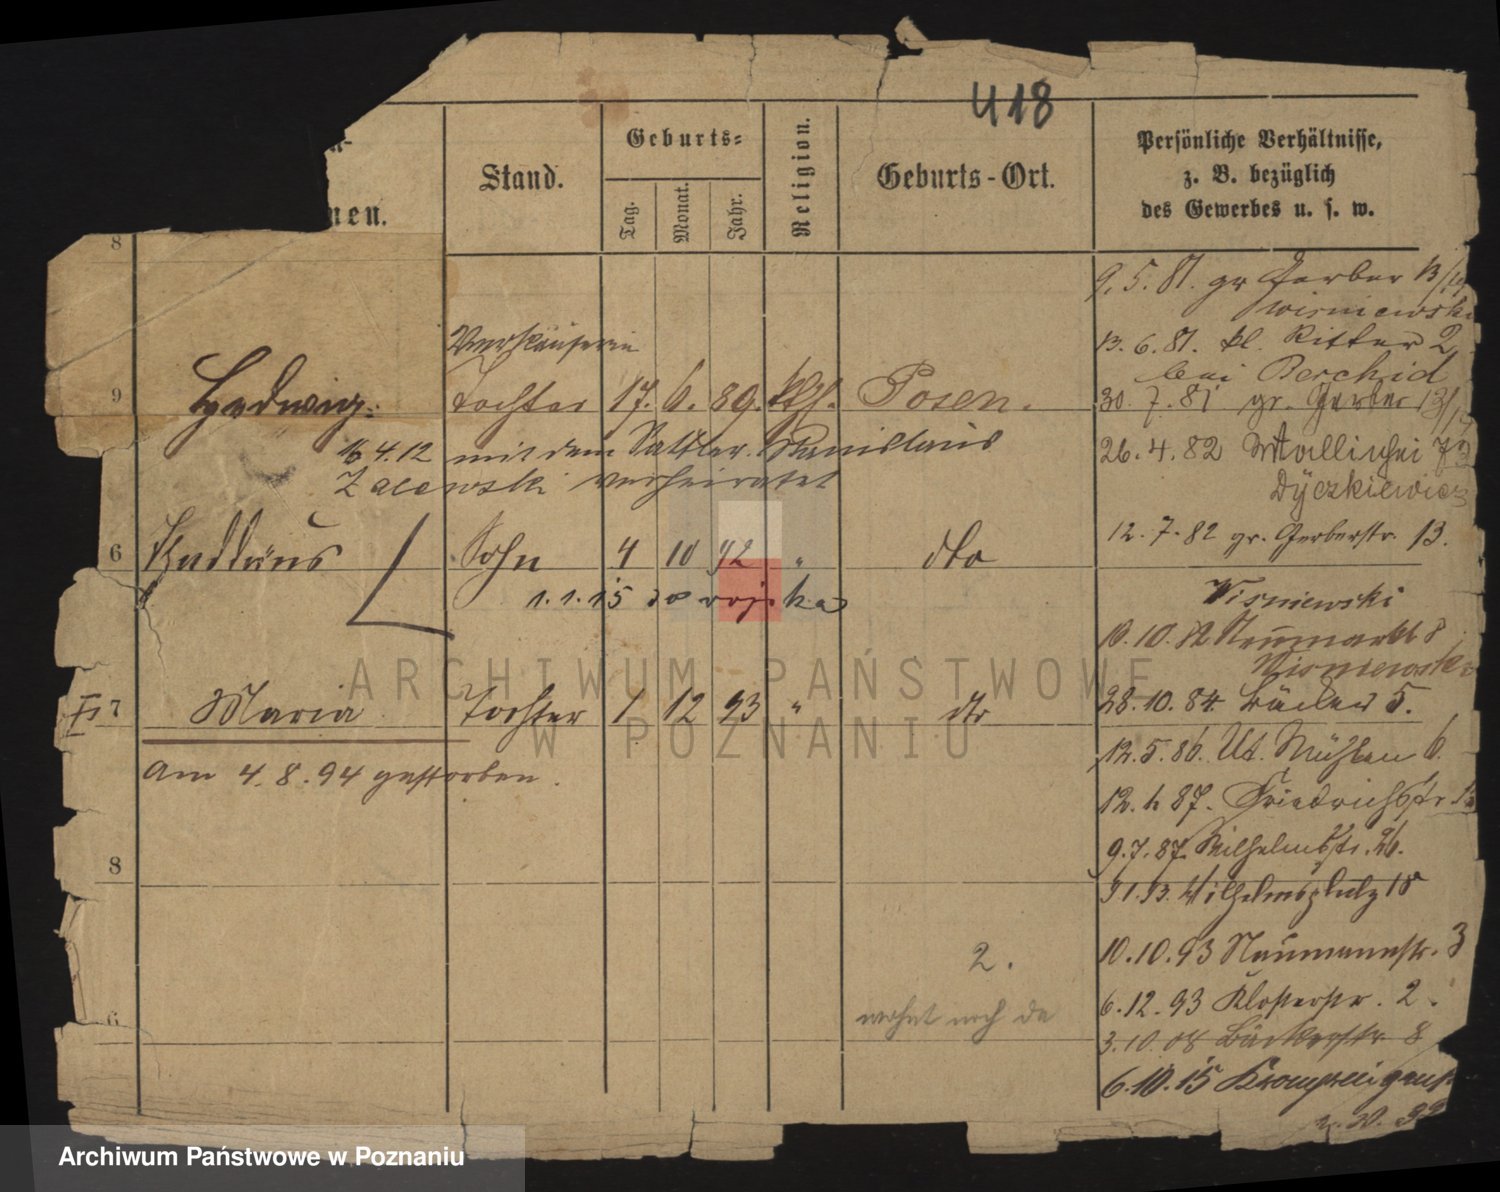 418
nen.
Stand.
Geburts=
Tag.
Monat.
Jahr.
Religion.
Geburts-Ort.
Persönliche Verhältnisse,
z. B. bezüglich
des Gewerbes u. s. w.
8
Verkäuferin
9 Hedwig. Tochter 17. 6. 89. kth. Posen.
16.4.12 mit dem Sattler Stanislaus
Zalewski verheiratet
6 Thaddäus Sohn 4 10 92 " dto
1.1.15 do wojska
7 Maria Tochter 1 12 93 " dto
am 4.8.94 gestorben.
8
2.
wohnt noch da
6
9.5.81. gr Gerber 13/14
Wisniewski
13.6.81. kl. Ritter 2
bei Berchid
30.7.81 gr. Gerber 13/14
26.4.82 Wallischei 73
Dyczkiewicz
12.7.82 gr. Gerberstr. 13.
Wisniewski
10.10.82 Neumarkt 8
Wisniewski
28.10.84 Bäcker 5.
12.5.86. Ut. Mühlen 6.
12.4.87. Friedrichstr.
9.7.87. Wilhelmstr. 26.
Wilhelmsplatz 18
10.10.93 Naumannstr. 3
6.12.93 Klosterstr. 2.
3.10.08 Bäckerstr 8
6.10.15
ARCHIWUM PAŃSTWOWE
W POZNANIU
Archiwum Państwowe w Poznaniu